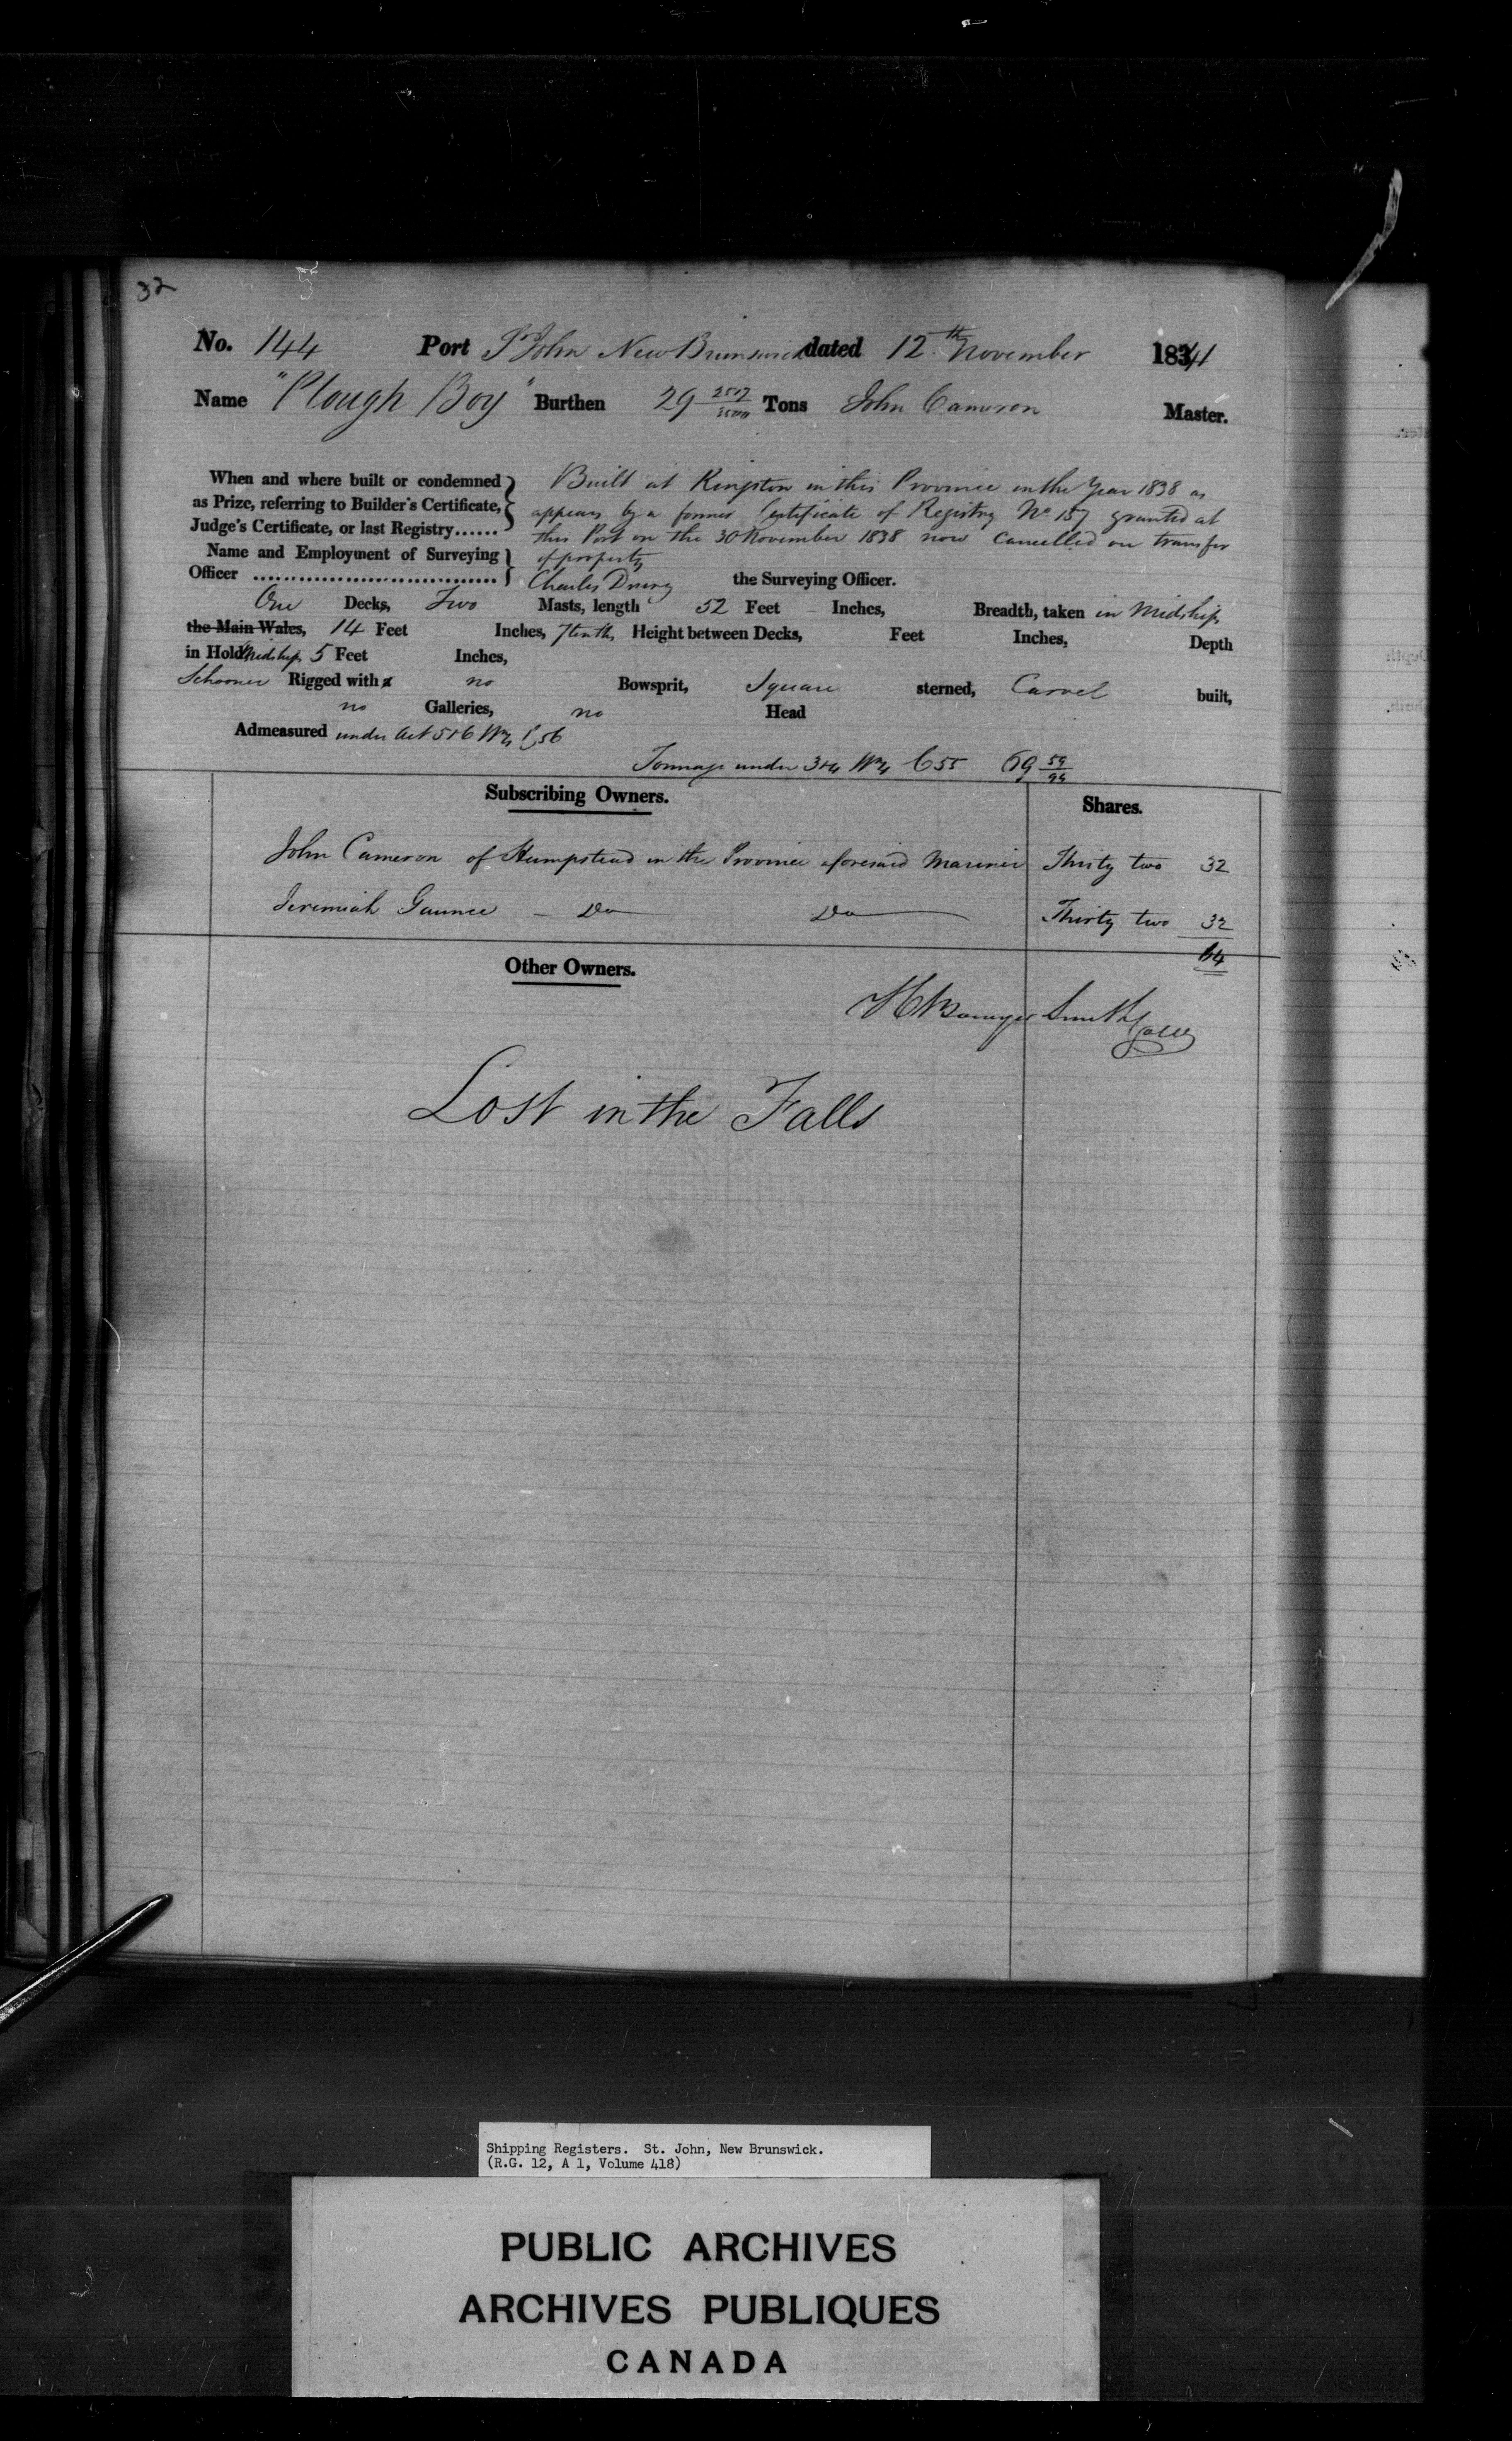 32
No. 144 Port St John New Brunswick dated 12th November 1841
Name "Plough Boy" Burthen 29 2507/3500 Tons John Cameron Master.
When and where built or condemned as Prize, referring to Builder's Certificate, Judge's Certificate, or last Registry......
Built at Kingston in this Province in the Year 1838 as
appears by a former Certificate of Registry No 157 granted at
this Port on the 30 November 1838 now cancelled on transfer
of property
Name and Employment of Surveying Officer ................................
Charles Drury the Surveying Officer.
One Decks, Two Masts, length 52 Feet Inches, Breadth, taken in Midships
the Main Wales, 14 Feet Inches, 7tenths, Height between Decks, Feet Inches, Depth
in Hold Midships 5 Feet Inches,
Schooner Rigged with a no Bowsprit, Square sterned, Carvel built,
no Galleries, no Head
Admeasured under Act 5&6 Wm 4 C 56
Tonnage under 3&4 Wm 4 C 55 69 59/94
Subscribing Owners. Shares.
John Cameron of Hampstead in the Province aforesaid Mariner Thirty two 32
Jeremiah Gaunce - Do Do Thirty two 32
64
Other Owners.
H Bowyer Smith Collr
Lost in the Falls
Shipping Registers. St. John, New Brunswick.
(R.G. 12, A 1, Volume 418)
PUBLIC ARCHIVES
ARCHIVES PUBLIQUES
CANADA